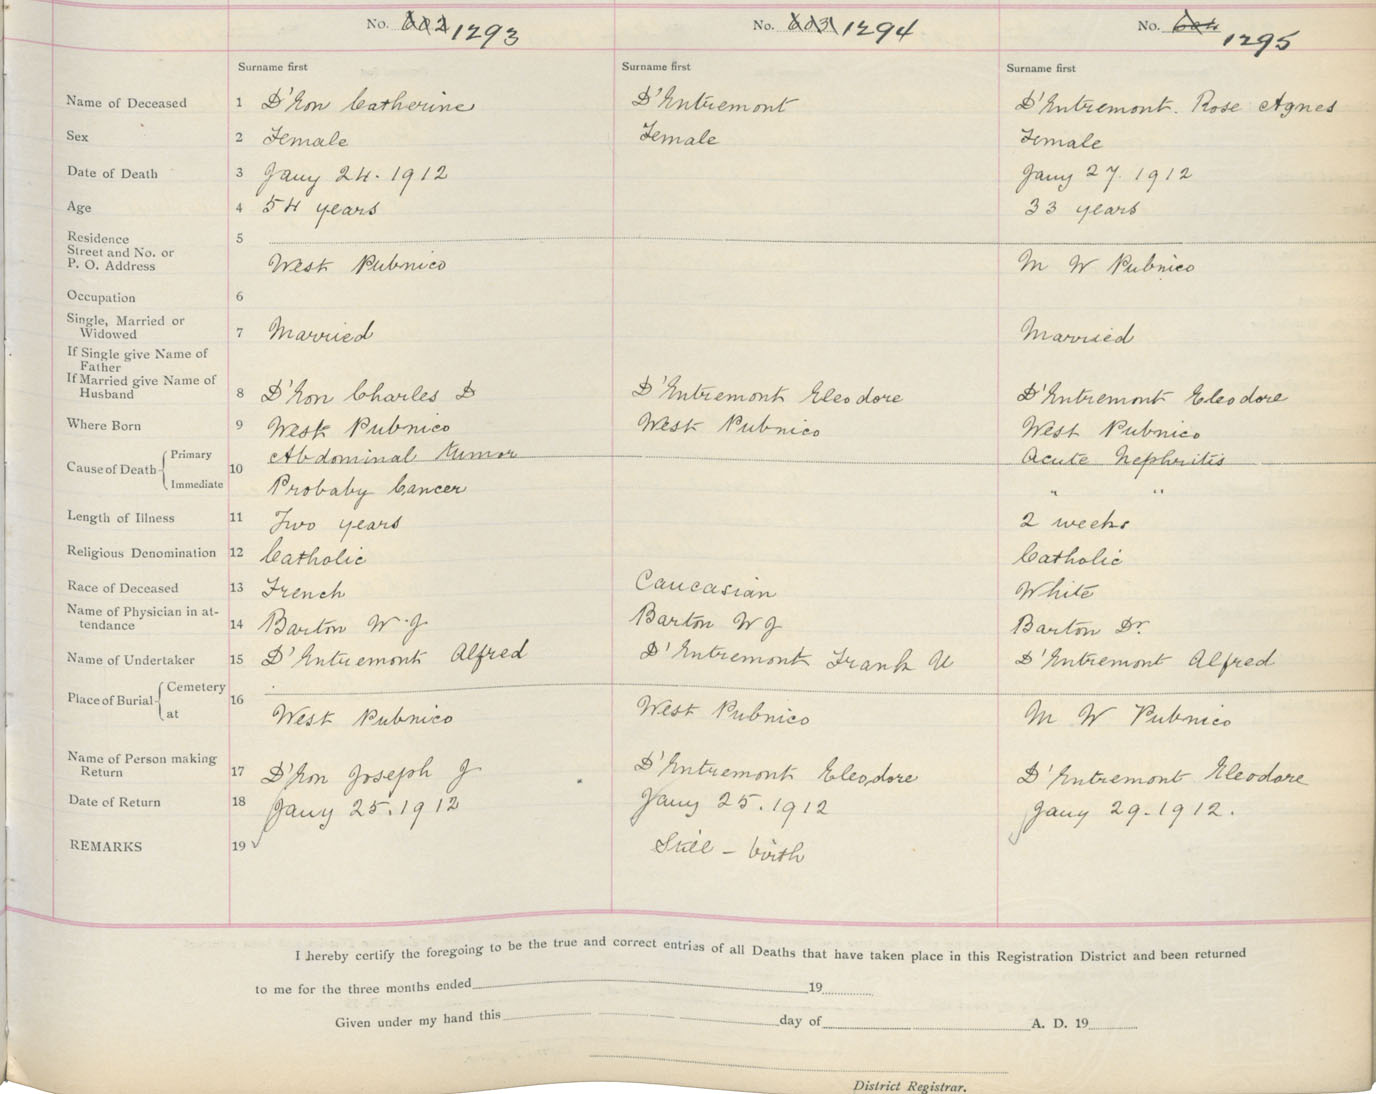 No. 662 1293 No. 663 1294 No. 664 1295
Surname first Surname first Surname first
Name of Deceased 1 D'Eon Catherine D'Entremont D'Entremont. Rose Agnes
Sex 2 Female Female Female
Date of Death 3 Jany 24. 1912 Jany 27. 1912
Age 4 54 years 33 years
Residence 5
Street and No. or
P. O. Address West Pubnico M W Pubnico
Occupation 6
Single, Married or
Widowed 7 Married Married
If Single give Name of
Father
If Married give Name of
Husband 8 D'Eon Charles D D'Entremont Eleodore D'Entremont Eleodore
Where Born 9 West Pubnico West Pubnico West Pubnico
Cause of Death Primary 10 Abdominal Tumor Acute Nephritis
Immediate Probaby Cancer " "
Length of Illness 11 Two years 2 weeks
Religious Denomination 12 Catholic Catholic
Race of Deceased 13 French Caucasian White
Name of Physician in at-
tendance 14 Barton W J Barton W J Barton Dr.
Name of Undertaker 15 D'Entremont Alfred D'Entremont Frank U D'Entremont Alfred
Place of Burial Cemetery 16
at West Pubnico West Pubnico M W Pubnico
Name of Person making
Return 17 D'Eon Joseph J D'Entremont Eleodore D'Entremont Eleodore
Date of Return 18 Jany 25. 1912 Jany 25. 1912 Jany 29. 1912.
REMARKS 19 Still - birth
I hereby certify the foregoing to be the true and correct entries of all Deaths that have taken place in this Registration District and been returned
to me for the three months ended 19
Given under my hand this day of A. D. 19
District Registrar.